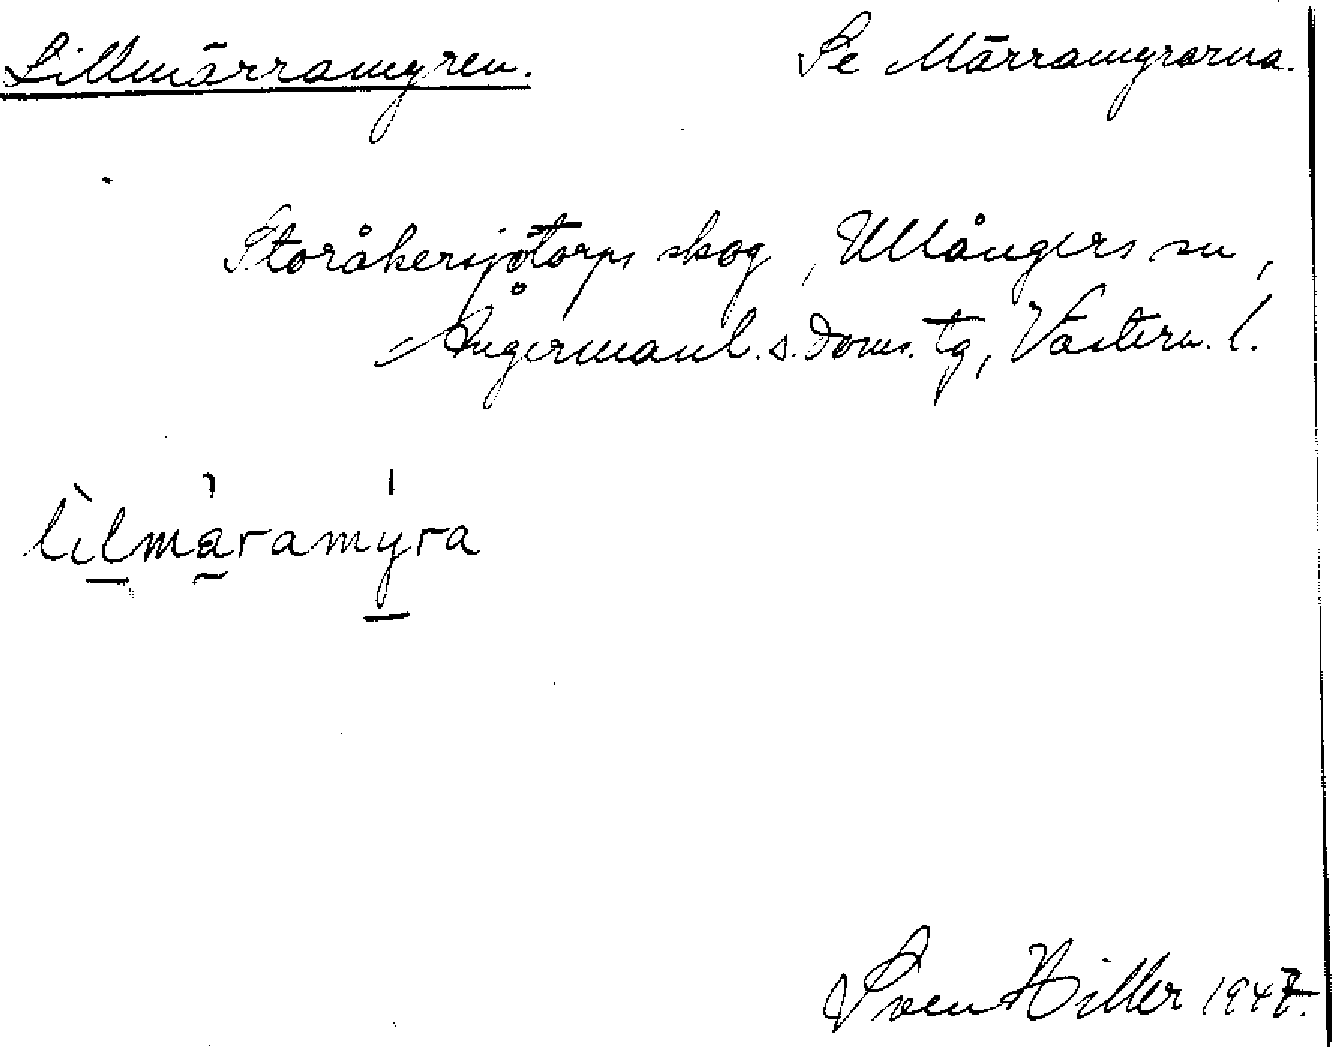 Lillmärramyren. Se Märramyrarna.
Storåkersjötorps skog, Ullångers sn,
Ångermanl. s. doms. tg, Västern. l.
lilmäramyra
Sven Hiller 1947.